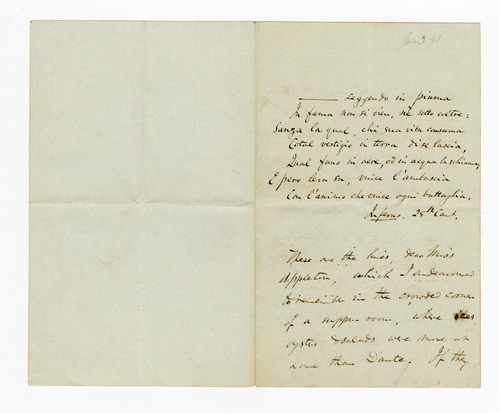 Jan 3 41
—— Leggendo in piuma
In fama non si vien, nè sotto coltre:
Sanza la qual, chi sua vita consuma
Cotal vestigio in terra di se lascia,
Qual fumo in aere, od in acqua la schiuma,
E pero leva su, vince l'ambascia
Con l'animo che vince ogni battaglia.
Inferno. 25th Cant.
These are the lines, dear Miss
Appleton, which I endeavored
to remember in the crowded corner
of a supper-room, where
oysters & salads were more at
home than Dante. If they